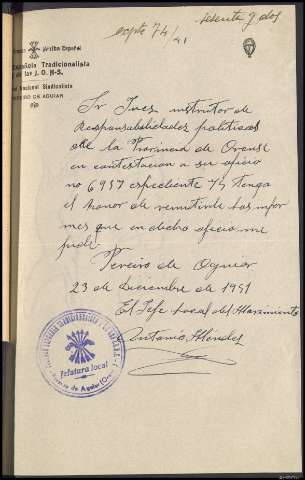 sesenta y dos
expte 74/41
Arriba Español
Española Tradicionalista
de las J. O. N-S.
Nacional Sindicalista
DE AGUIAR
Sr Juez instructor de
Responsabilidades politicas
de la Provincia de Orense
en contestacion a su oficio
no 6957 espediente 74 tengo
el honor de remitirle los infor
mes que en dicho oficio me
pide.
Pereiro de Aguiar
23 de Diciembre de 1941
El Jefe Local del Movimiento
Antonio Mendez
Jefatura local
Pereiro de Aguiar (Orense)